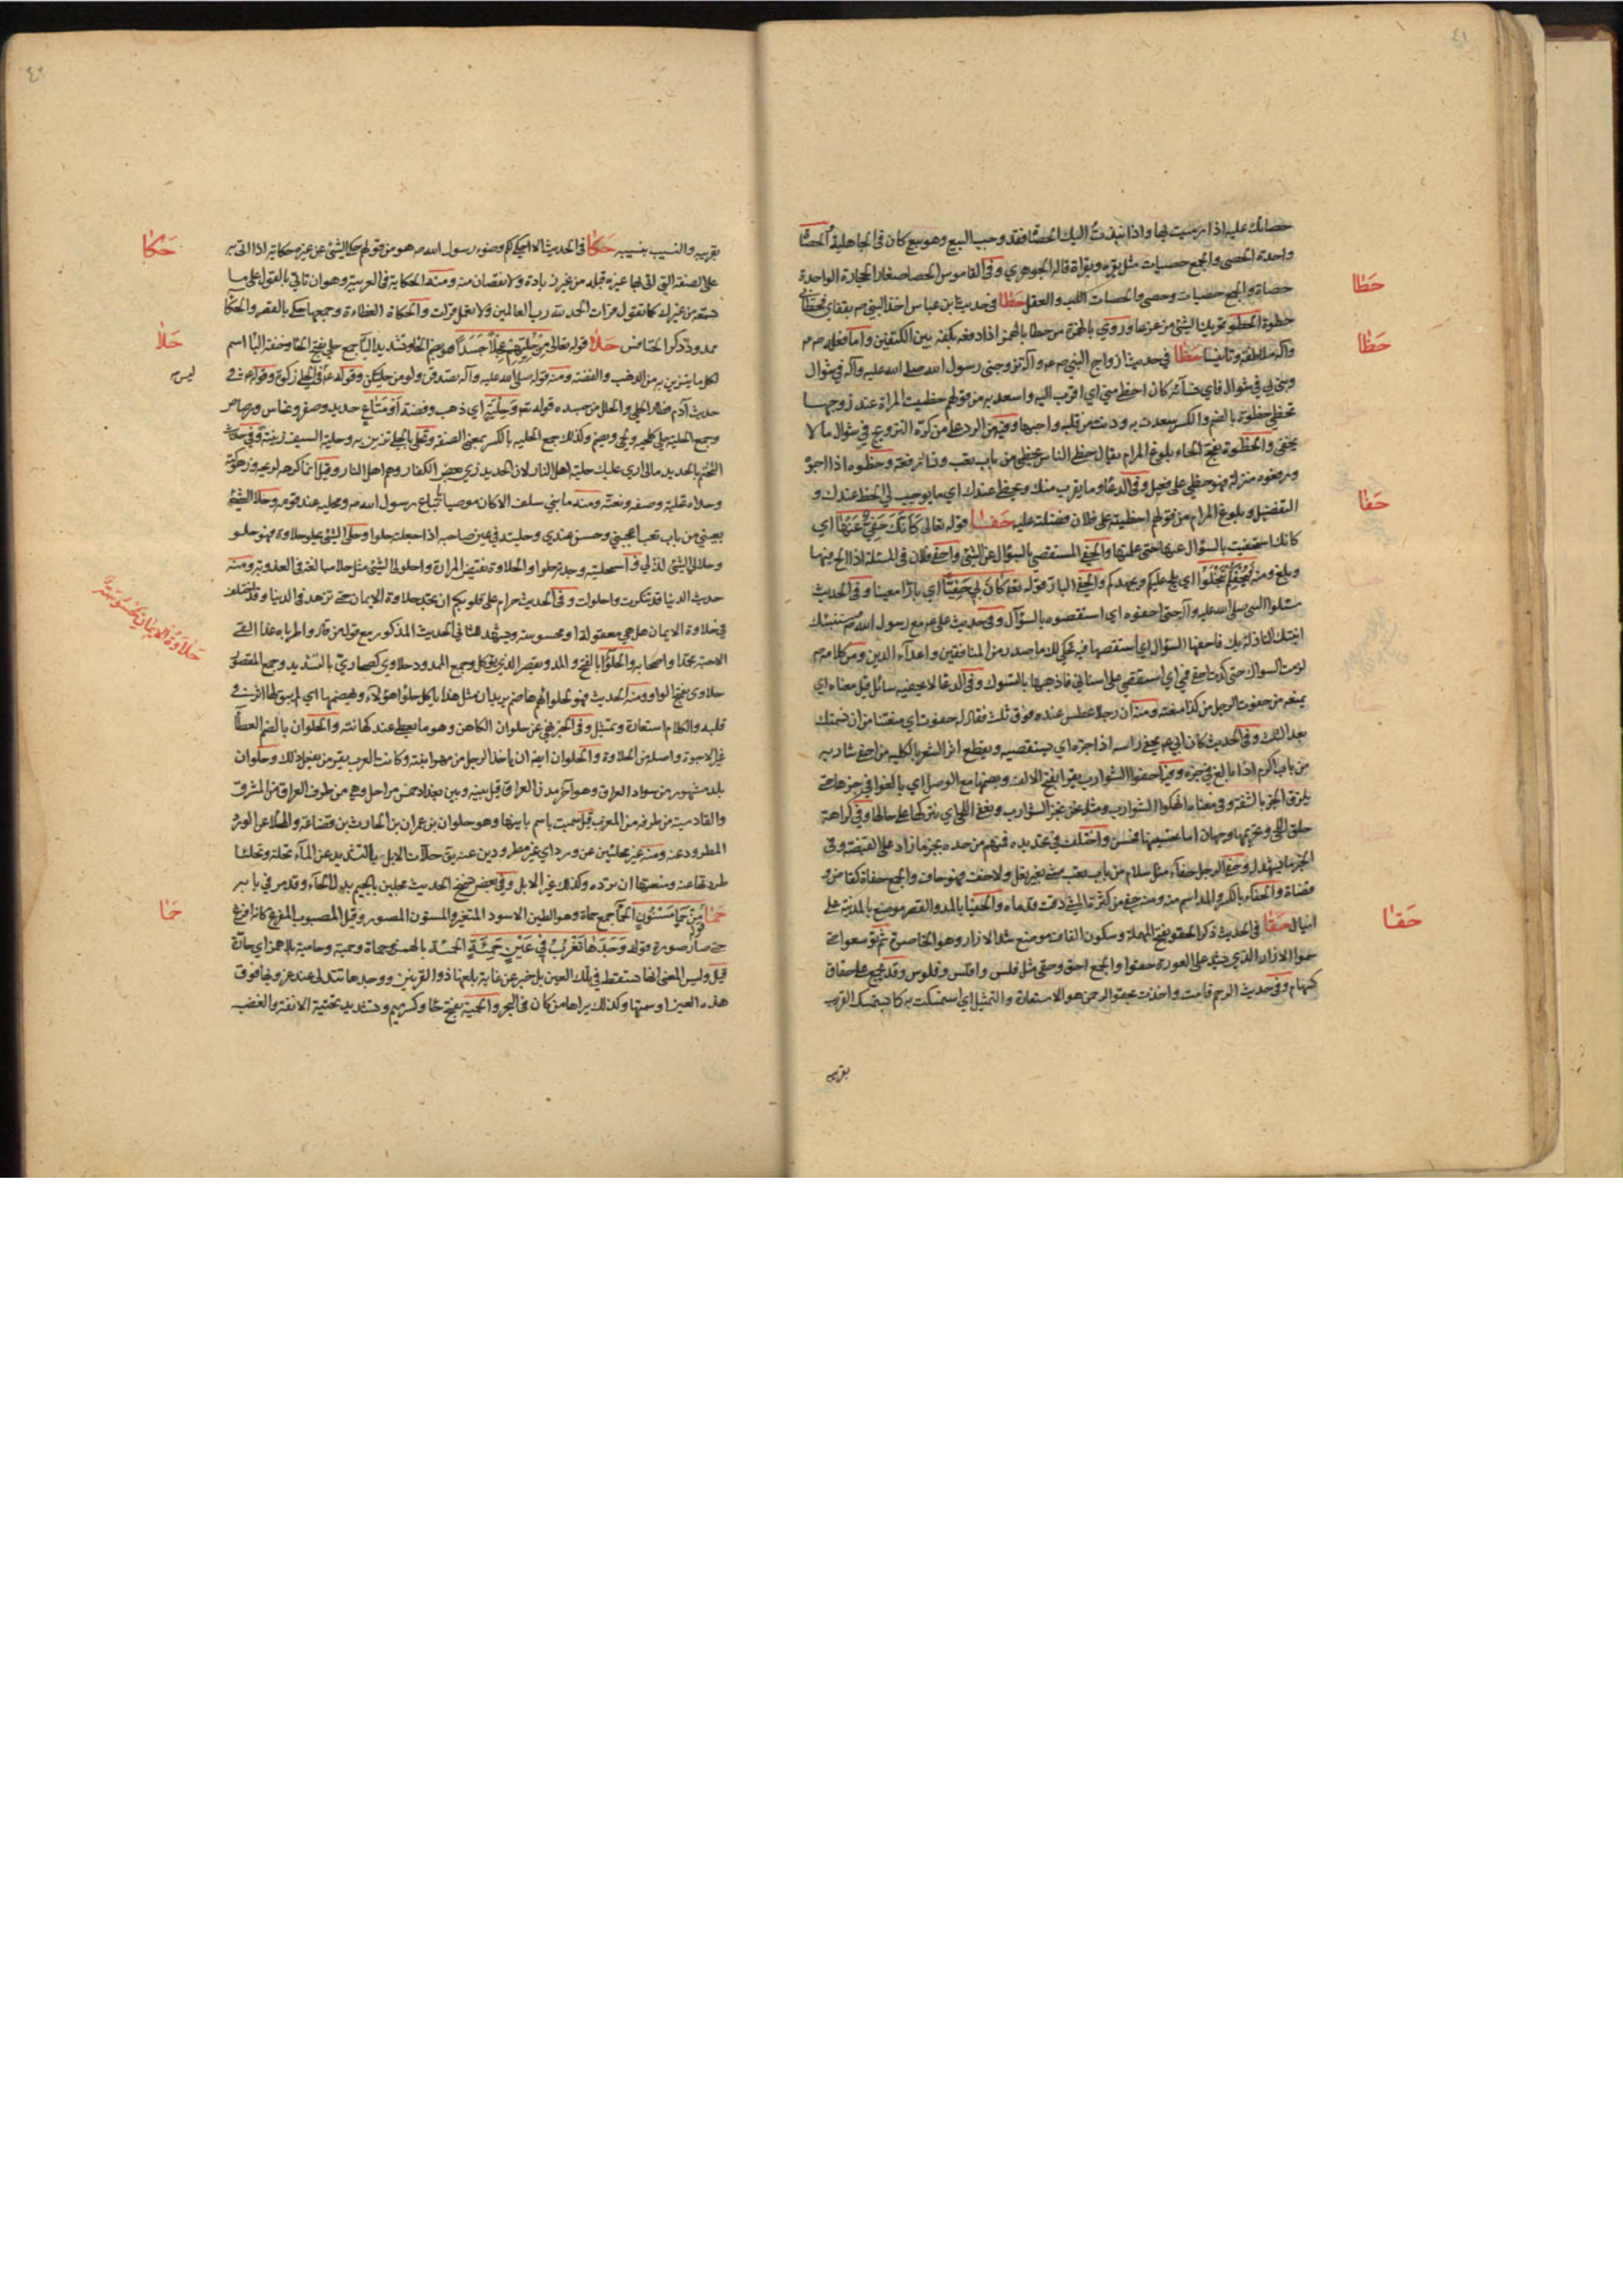 ٤١
حصاتك عليه اذا رميت بها واذا نبذت اليك الحصا فقد وجب البيع وهو بيع كان في الجاهلية والحصا
واحدة الحصى والجمع حصيات مثل بقرة وبقرات قاله الجوهري وفي القاموس الحصا صغار الحجارة الواحدة
حصاة والجمع حصيات وحصي والحصات اللب والعقل حطا في حديث ابن عباس اخذ النبي ص بقفاي فحطاني
حطا
حطوة الحطو تحريك الشئ من عزعا وروي بالهمزة من حطا بالهمز اذا دفعه بكفه بين الكتفين وانما فعله ص
وآله ملاطفة وتانيسا حظا في حديث ازواج النبي ص وآله تزوجني رسول الله صلى الله عليه وآله في شوال
حظا
وبنى بي في شوال فاي نسآئه كان احظى مني اي اقرب اليه واسعد به من قولهم حظيت المراة عند زوجها
تحظى حظوة بالضم والكسر سعدت به ودنت من قلبه واحبها وفيه الرد على من كره التزويج في شوال ما لا
يخفى والحظوة بفتح الحاء بلوغ المرام يقال حظى الناس يحظى من باب تعب وفا رفعة وحظوه اذا احبوه
ورفعوه منزلة فهو حظي على فعيل وفي الدعا وما يقرب منك ويحظي عندك اي ما يوجب لي الحظ عندك و
التفضيل وبلوغ المرام من قولهم احظيته على فلان فضلته عليه حفا قوله تعالى كَأَنَّكَ حَفِيٌّ عَنْهَا اي
حفا
كانك استحفيت بالسؤال عنها حتى علمتها والحفي المستقصي بالسؤال عن الشئ واحفى فلان في المسئلة اذا الح فيها
وبلغ ومنه فَيُحْفِكُمْ تَبْخَلُوا اي يلح عليكم ويجهدكم والحفي البار قوله تعه كَانَ بِي حَفِيًّا اي بارا معينا وفي الحديث
سئلوا النبي صلى الله عليه وآله حتى احفوه اي استقصوه بالسؤآل وفي حديث علي ع مع رسول الله ص ستنبئك
ابنتك النازلة بك فاحفها السؤال اي استقصها فيه تحكي لك ما صدر من المنافقين واعدآء الدين ومن كلامه ص
لزمت السواك حتى كدت احفي فمي اي استقصي على اسناني فاذهبها بالتسوك وفي الدعا لا يحفيه سائل قيل معناه اي
يمنعه من حفوت الرجل من كذا منعته ومنه ان رجلا عطس عنده فوق ثلث فقال له حفوت اي منعتنا من ان نشمتك
بعد الثلث وفي الحديث كان ابي ع يحفي راسه اذا جزه اي يستقصيه ويقطع اثر الشعر بالكلية من احفى شاربه
من باب اكرم اذا بالغ في جزه وفيه احفوا الشوارب يقرا بفتح الالف وبضمها مع الوصل اي بالغوا في جزها حتى
يلزق الجز بالشفة وفي معناه انهكوا الشوارب ومثله نحن نجز الشوارب ونعفي اللحى اي نتركها على حالها وفي كراهة
حلق اللحى وتحريمها وجهان اما تحسينها فحسن واختلف في تحديده فمنهم من حده بجز ما زاد على القبضة وفى
وحفي الرجل حفآء مثل سلام من باب تعب مشى بغير نعل ولا خف فهو حاف والجمع حفاة كقاض و
قضاة والحفاء بالكسر والمد اسم منه ومنه حفي من كثرة المشي رقت قدماه والحفيا بالمد والقصر موضع بالمدينة على
اميال حقا في الحديث ذكر الحقو بفتح المهملة وسكون القاف موضع شد الازار وهو الخاصرة ثم توسعوا حتى
حقا
سموا الازار الذي يشد على العورة حقوا والجمع احق وحقي مثل فلس وافلس وفلوس وقد يجمع على حقاء
كسهام وفي حديث الرحم قامت واخذت بحقو الرحمن هو الاستعارة والتمثيل اي استمسكت به كما يستمسك القريب
بقريبه
٤٢
بقريبه والنسيب بنسيبه حكا في الحديث الا احكي لكم وضوء رسول الله ص هو من قولهم حكى الشئ عن غيره حكاية اذا اتى به
حكا
على الصفة التي اتى بها غيره قبله من غير زيادة ولا نقصان منه ومنه الحكاية في العربية وهو ان تاتي بالقول على ما
تسمعه من غيرك كما تقول قرات الحمد لله رب العالمين ولا تعمل قرات والحكاة العظاءة وجمعها حكى بالقصر والحكا
ممدود ذكر الخنافس حلا قوله تعالى مِنْ حُلِيِّهِمْ عِجْلًا جَسَدًا هو بضم الحا وتشديد اليآ جمع حلي بفتح الحا وخفة اليا اسم
حلا
لكل ما يتزين به من الذهب والفضة ومنه قوله صلى الله عليه وآله تصدقن ولو من حليكن وقوله ع في الحلي زكوة وقوله ع في
ليس
حديث آدم فطار الحلي والحلل من جسده قوله تعه وَحِلْيَةٍ اي ذهب وفضة أَوْ مَتَاعٍ حديد وصفر ونحاس ورصاص
وجمع الحلية حلي كلحية ولحى ويضم وكذلك جمع الحلية بالكسر بمعنى الصفة وتحلى بالحلي تزين به وحلية السيف زينته وفي حديث
التختم بالحديد مالي ارى عليك حلية اهل النار لان الحديد زي بعض الكفار وهم اهل النار وقيل انما كرهه لريحه وزهوكته
وحلاه تحلية وصفه ونعته ومنه ما بني سلف الا كان موصيا باتباع رسول الله ص ومحليه عند قومه وحلا الشئ
بعيني من باب تعب اعجبني وحسن عندي وحليته في عين صاحبه اذا جعلته حلوا وحلى الشئ يحلو حلاوة فهو حلو
وحلا لي الشئ لذ لي واستحليته وجدته حلوا والحلاوة نقيض المرارة واحلولى الشئ مثل حلا مبالغة في العذوبة ومنه
حديث الدنيا قد تنكرت واحلولت وفي الحديث حرام على قلوبكم ان تجد حلاوة الايمان حتى تزهد في الدنيا وقد اختلف
في حلاوة الايمان هل هي معقولة او محسوسة ويشهد للثاني الحديث المذكور مع قوله من قال واطرباه غدا القى
حَلَاوَةُ الْإِيمَانِ مَحْسُوسَة
الاحبة محمدا واصحابه والحلوا بالفتح والمد ويقصر الذي يؤكل وجمع الممدود حلاوي كصحاريّ بالتشديد وجمع المقصور
حلاوى بفتح الواو ومنه الحديث
قلبه والكلام استعارة وتمثيل وفي الخبر نهي عن حلوان الكاهن وهو ما يعطى عند كهانته والحلوان بالضم العطآ
غير الاجرة واصله من الحلاوة والحلوان ايضا ان ياخذ الرجل من مهر ابنته وكانت العرب تعير من يفعل ذلك وحلوان
بلد مشهور من سواد العراق وهو آخر مدن العراق قيل بينه وبين بغداد خمس مراحل وهي من طرف العراق من المشرق
والقادسية من طرفه من المغرب قيل سميت باسم بانيها وهو حلوان بن عمران بن الحارث بن قضاعة والمحلا عن الورد
المطرود عنه ومنه غير محلئين عن ورد اي غير مطرودين عنه يق حلات الابل بالتشديد عن المآء تحلئة وتحليئا
طردتها عنه ومنعتها ان ترده وكذلك غير الابل وفي بعض نسخ الحديث مجلين بالجيم بدل الحآء وقد مر في بابه
حما مِنْ حَمَإٍ مَسْنُونٍ الحمأ جمع حماة وهو الطين الاسود المتغير والمسنون المصور وقيل المصبوب المفرغ كانه افرغ
حما
حتى صار صورة قوله وَجَدَهَا تَغْرُبُ فِي عَيْنٍ حَمِئَةٍ الحمئة بالهمز ذو حماة وحمية وحامية بلا همز اي حارّة
قيل وليس المعنى انها تسقط في تلك العين بل خبر عن غاية بلغها ذو القرنين ووجدها تتدلى عند غروبها فوق
هذه العين او سمتها وكذلك يراها من كان في البحر والحمية بفتح حا وكسر ميم وتشديد تحتية الانفة والغضب